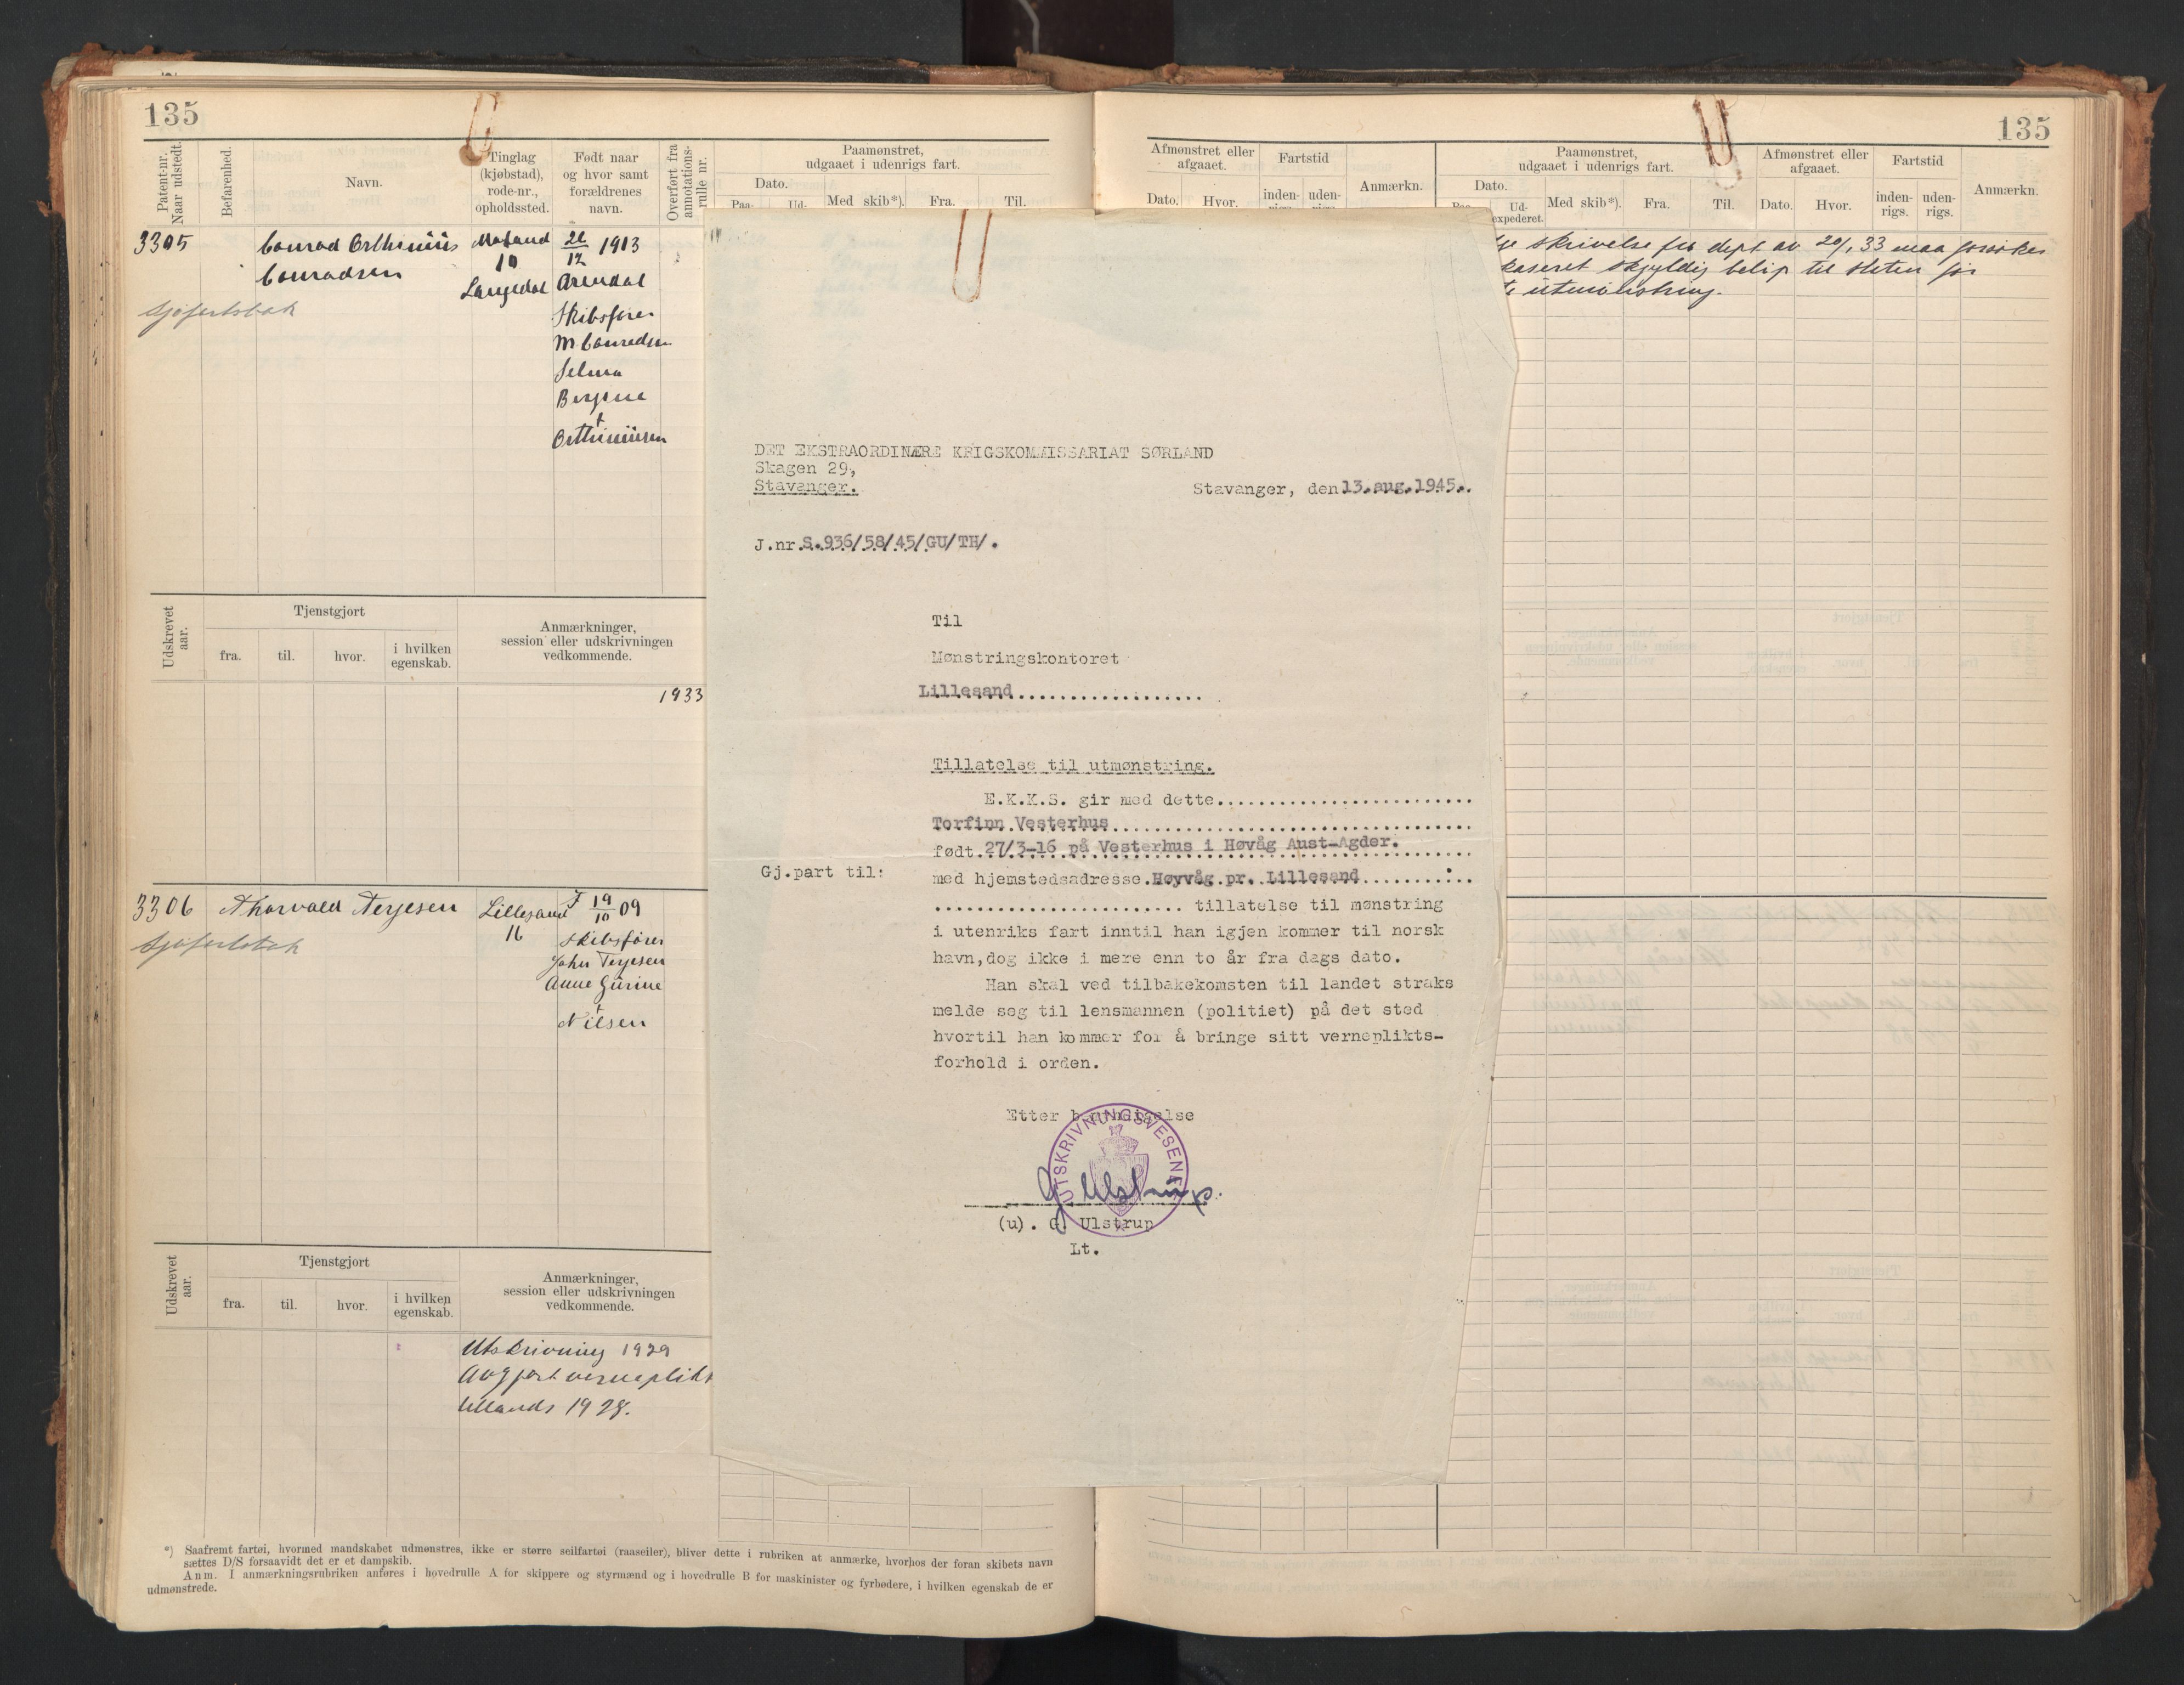 135
Patent-nr.
Naar udstedt.
Befarenhed.
Navn.
Tinglag
(kjøbstad),
rode-nr.,
opholdssted.
Født naar
og hvor samt
forældrenes
navn.
Overført fra
annotations-
rulle nr.
Paamønstret,
udgaaet i udenrigs fart.
Dato.
Paa-
Ud-
Med skib*).
Fra.
Til.
3305
Conrad Orthenius
Conradsen
Sjøfartsbok
10
Langedal
1913
Arendal
Skibsfører
M. Conradsen
Selma
Udskrevet
aar.
Tjenstgjort
fra.
til.
hvor.
i hvilken
egenskab.
Anmærkninger,
session eller udskrivningen
vedkommende.
1933
3306
Thorvald Terjesen
Sjøfartsbok
Lillesand
16
19/10 09
Skibsfører
John Terjesen
Anne Gurine
Nilsen
Udskrevet
aar.
Tjenstgjort
fra.
til.
hvor.
i hvilken
egenskab.
Anmærkninger,
session eller udskrivningen
vedkommende.
Utskrivning 1929
Avgjort vernepliks
utlands 1928.
*) Saafremt fartøi, hvormed mandskabet udmønstres, ikke er større seilfartøi (raaseiler), bliver dette i rubriken at anmærke, hvorhos der foran skibets navn
sættes D/S forsaavidt det er et dampskib.
Anm. I anmærkningsrubriken anføres i hovedrulle A for skippere og styrmænd og i hovedrulle B for maskinister og fyrbødere, i hvilken egenskab de er
udmønstrede.
DET EKSTRAORDINÆRE KRIGSKOMMISSARIAT SØRLAND
Skagen 29,
Stavanger.
Stavanger, den 13.aug.1945.
J.nr.S.936/58/45/GU/TH/.
Til
Mønstringskontoret
Lillesand
Tillatelse til utmønstring.
E.K.K.S. gir med dette
Torfinn Vesterhus
født 27/3-16 på Vesterhus i Høvåg Aust-Agder.
Gj.part til:
med hjemstedsadresse Høyvåg pr. Lillesand
tillatelse til mønstring
i utenriks fart inntil han igjen kommer til norsk
havn, dog ikke i mere enn to år fra dags dato.
Han skal ved tilbakekomsten til landet straks
melde seg til lensmannen (politiet) på det sted
hvortil han kommer for å bringe sitt vernepliks-
forhold i orden.
Etter bemyndigelse
UTSKRIVNINGSVESENET
G Ulstrup
(u). G. Ulstrup
Lt.
135
Afmønstret eller
afgaaet.
Dato.
Hvor.
Fartstid
inden-
rigs.
uden-
rigs.
Anmærkn.
Paamønstret,
udgaaet i udenrigs fart.
Dato.
Paa-
Ud-
expederet.
Med skib*).
Fra.
Til.
Afmønstret eller
afgaaet.
Dato.
Hvor.
Fartstid
inden-
rigs.
uden-
rigs.
Anmærkn.
skrivelse fra dept av 20/1 33 maa
skyldig beløp til staten før
utmønstring.